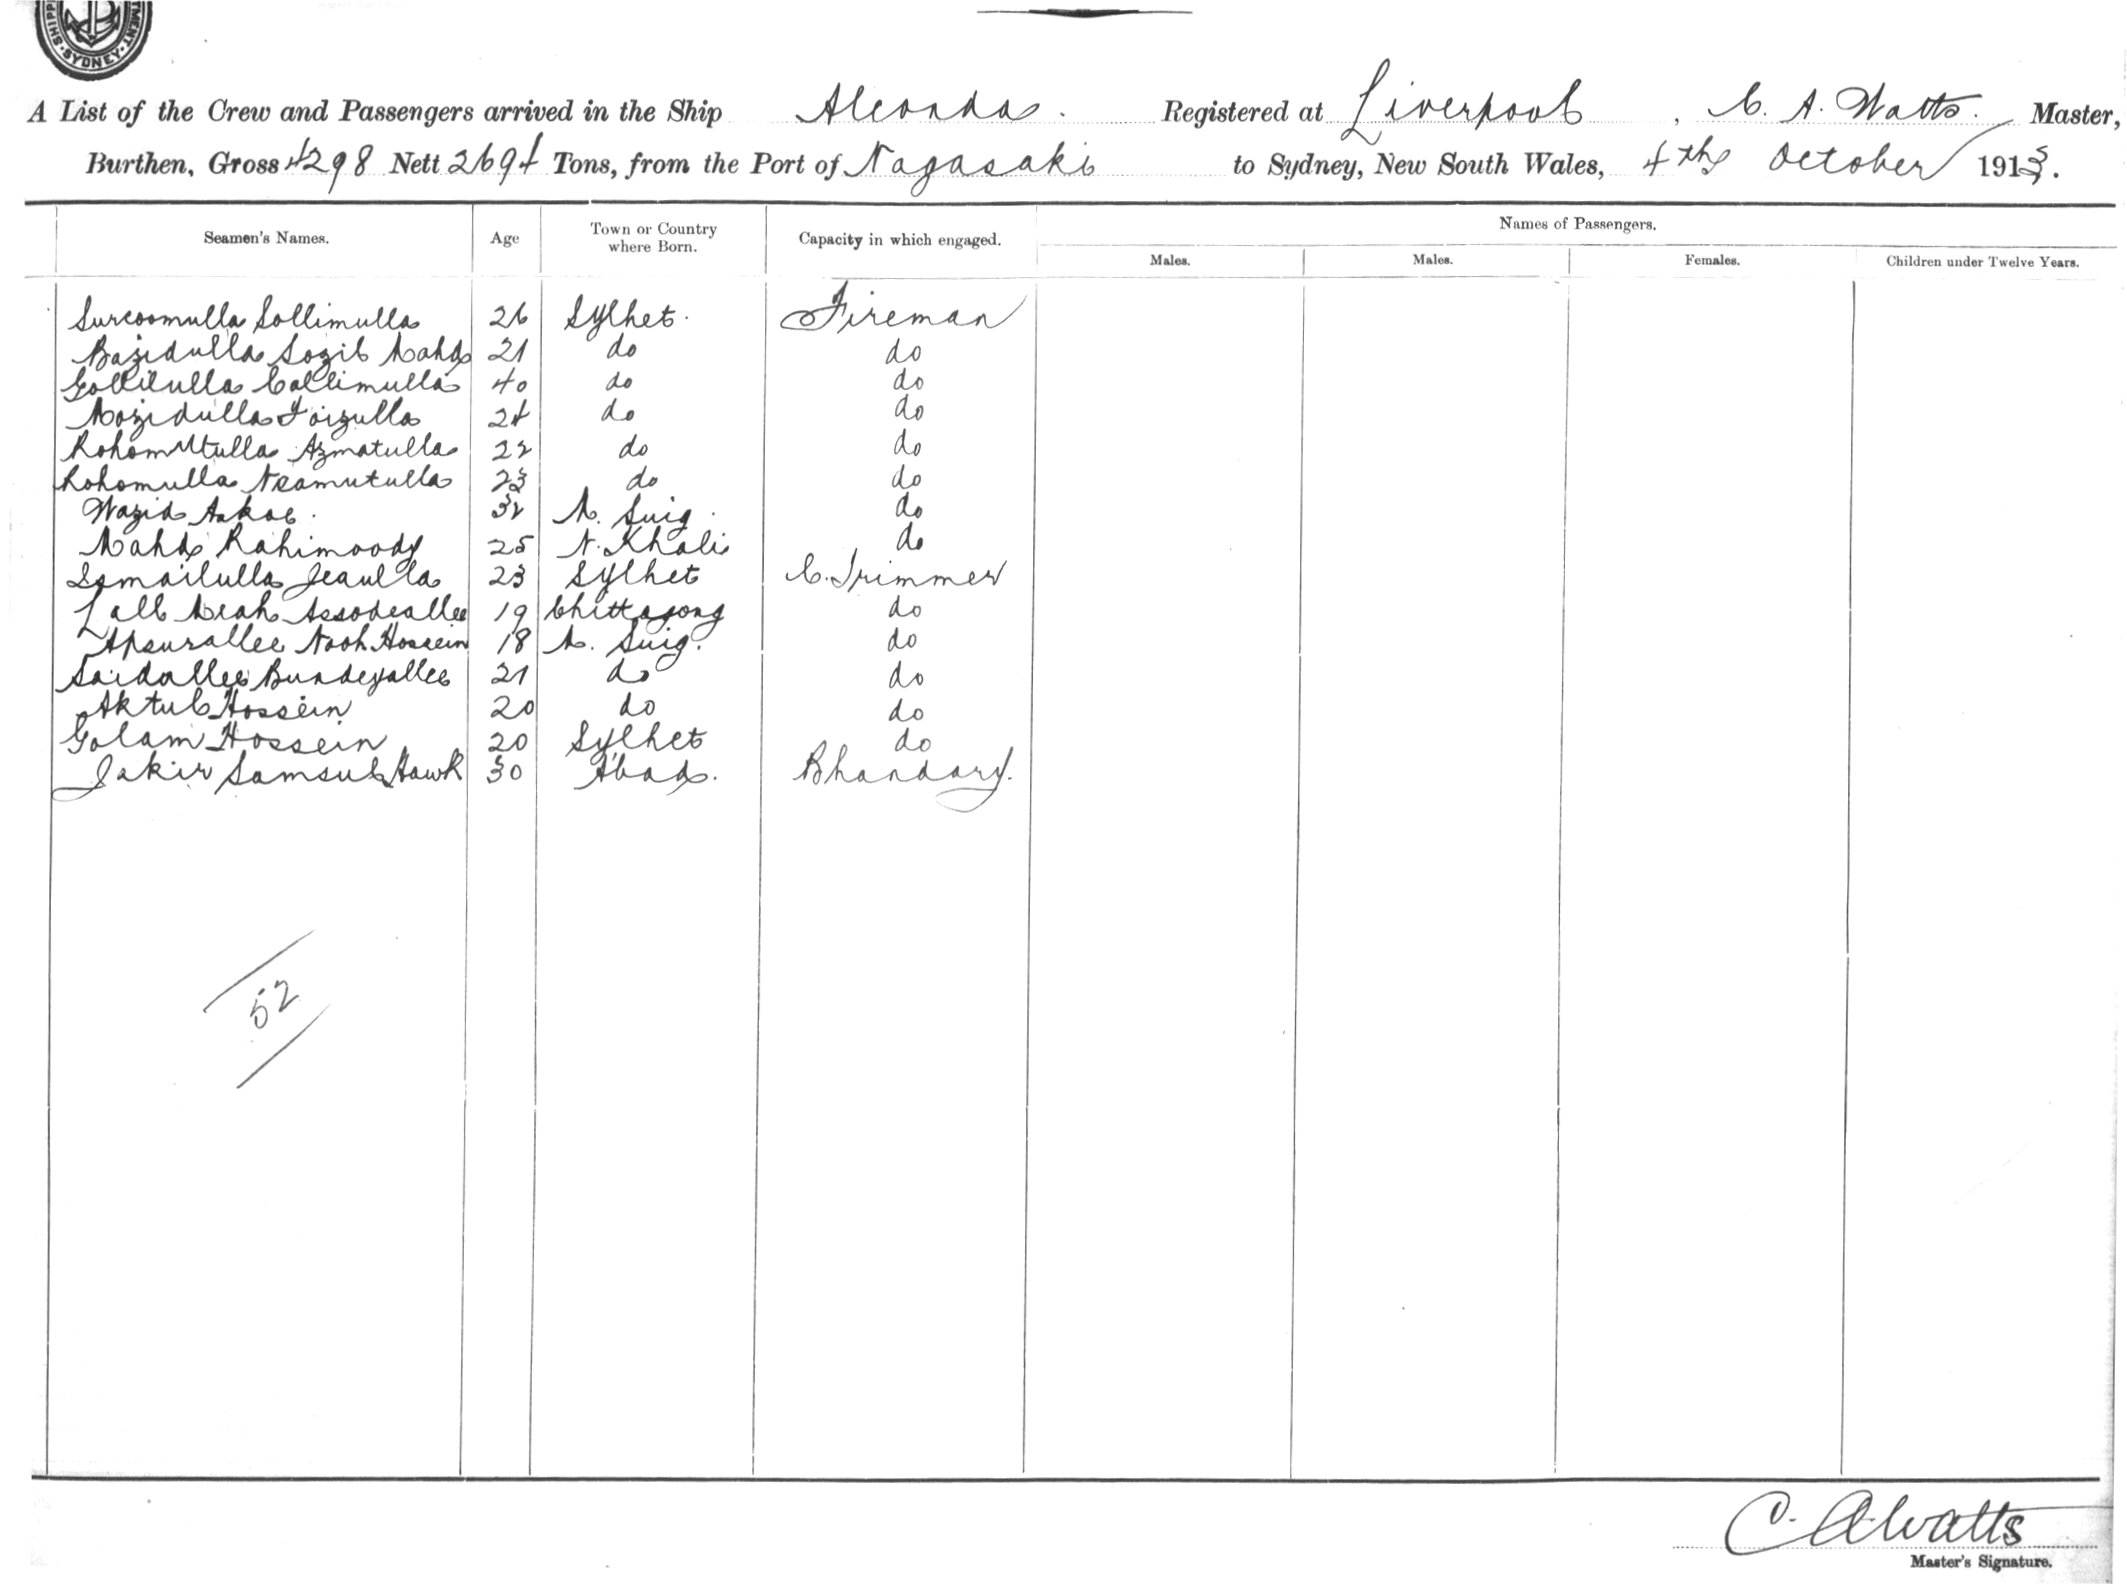 SHIPP
TMENT
SYDNEY
A List of the Crew and Passengers arrived in the Ship Alconda. Registered at Liverpool, C. A. Watts. Master,
Burthen, Gross 4298 Nett 2694 Tons, from the Port of Nagasaki to Sydney, New South Wales, 4th October 1913.
Seamen's Names. Age Town or Country where Born. Capacity in which engaged. Names of Passengers.
Males. Males. Females. Children under Twelve Years.
Surcoomulla Sollimulla 26 Sylhet. Fireman
Bazidulla Sogib Mahd 21 do do
Gollilulla Collimulla 40 do do
Mozidulla Foizulla 24 do do
Rohomutulla Azmatulla 22 do do
Rohomulla Neamutulla 23 do do
Wazid 32 M. Suig. do
Mahd Rahimoody 25 N. Khali do
Ismailulla Jeaulla 23 Sylhet C. Trimmer
Lall Meah Assodeallee 19 Chittagong do
Apsurallee Nooh Hossein 18 M. Suig. do
Saidallee Bundeyallee 21 do do
Aktul Hossein 20 do do
Golam Hossein 20 Sylhet do
Jakir Samsul Hawk 30 Abad. Bhandary.
52
C. A Watts
Master's Signature.